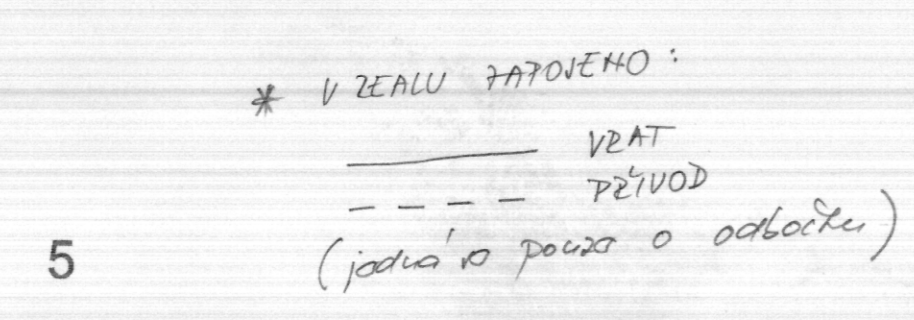 * V REÁLU ZAPOJENO:
VRAT
PŘÍVOD
(jedná se pouze o odbočku)
5